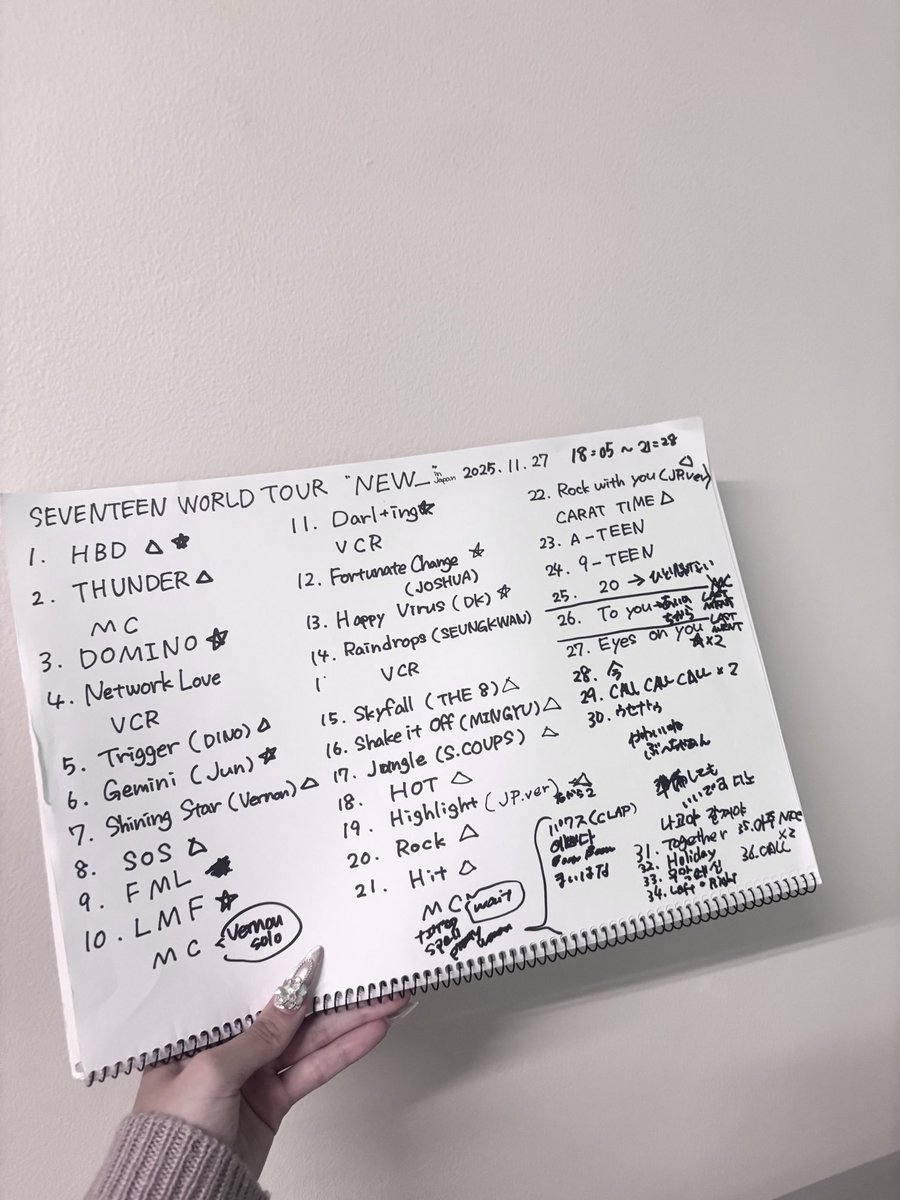 SEVENTEEN WORLD TOUR "NEW_" in Japan 2025.11.27 18:05 ~ 21:28
1. HBD △ ★
2. THUNDER △
MC
3. DOMINO ☆
4. Network Love
VCR
5. Trigger (DINO) △
6. Gemini (Jun) ☆
7. Shining Star (Vernon) △
8. SOS △
9. FML ★
10. LMF ☆
MC Vernon solo
11. Darl+ing ☆
VCR
12. Fortunate Change ☆
(JOSHUA)
13. Happy Virus (DK) ☆
14. Raindrops (SEUNGKWAN)
VCR
15. Skyfall (THE 8) △
16. Shake it Off (MINGYU) △
17. Jungle (S.COUPS) △
18. HOT △
19. Highlight (JP.ver)
20. Rock △
21. Hit △
MC wait
22. Rock with you (JP.ver) △
CARAT TIME △
23. A-TEEN
24. 9-TEEN
25. 20 →
26. To you
LAST MENT
27. Eyes on you
LAST MENT
×2
28. 今
29. CALL CALL CALL ×2
30.
(CLAP)
31. Together
32. Holiday
33.
34. Left & Right
35. 아주 NICE
×2
36. CALL